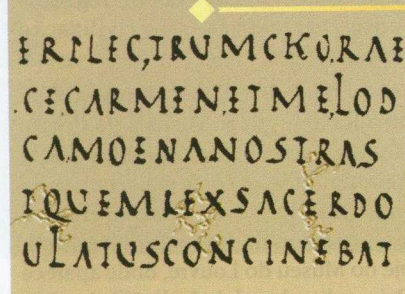 ERPLECTRUMCHORAE
CECARMENETMELOD
CAMOENANOSTRAS
TQUEMREXSACERDO
ULATUSCONCINEBAT